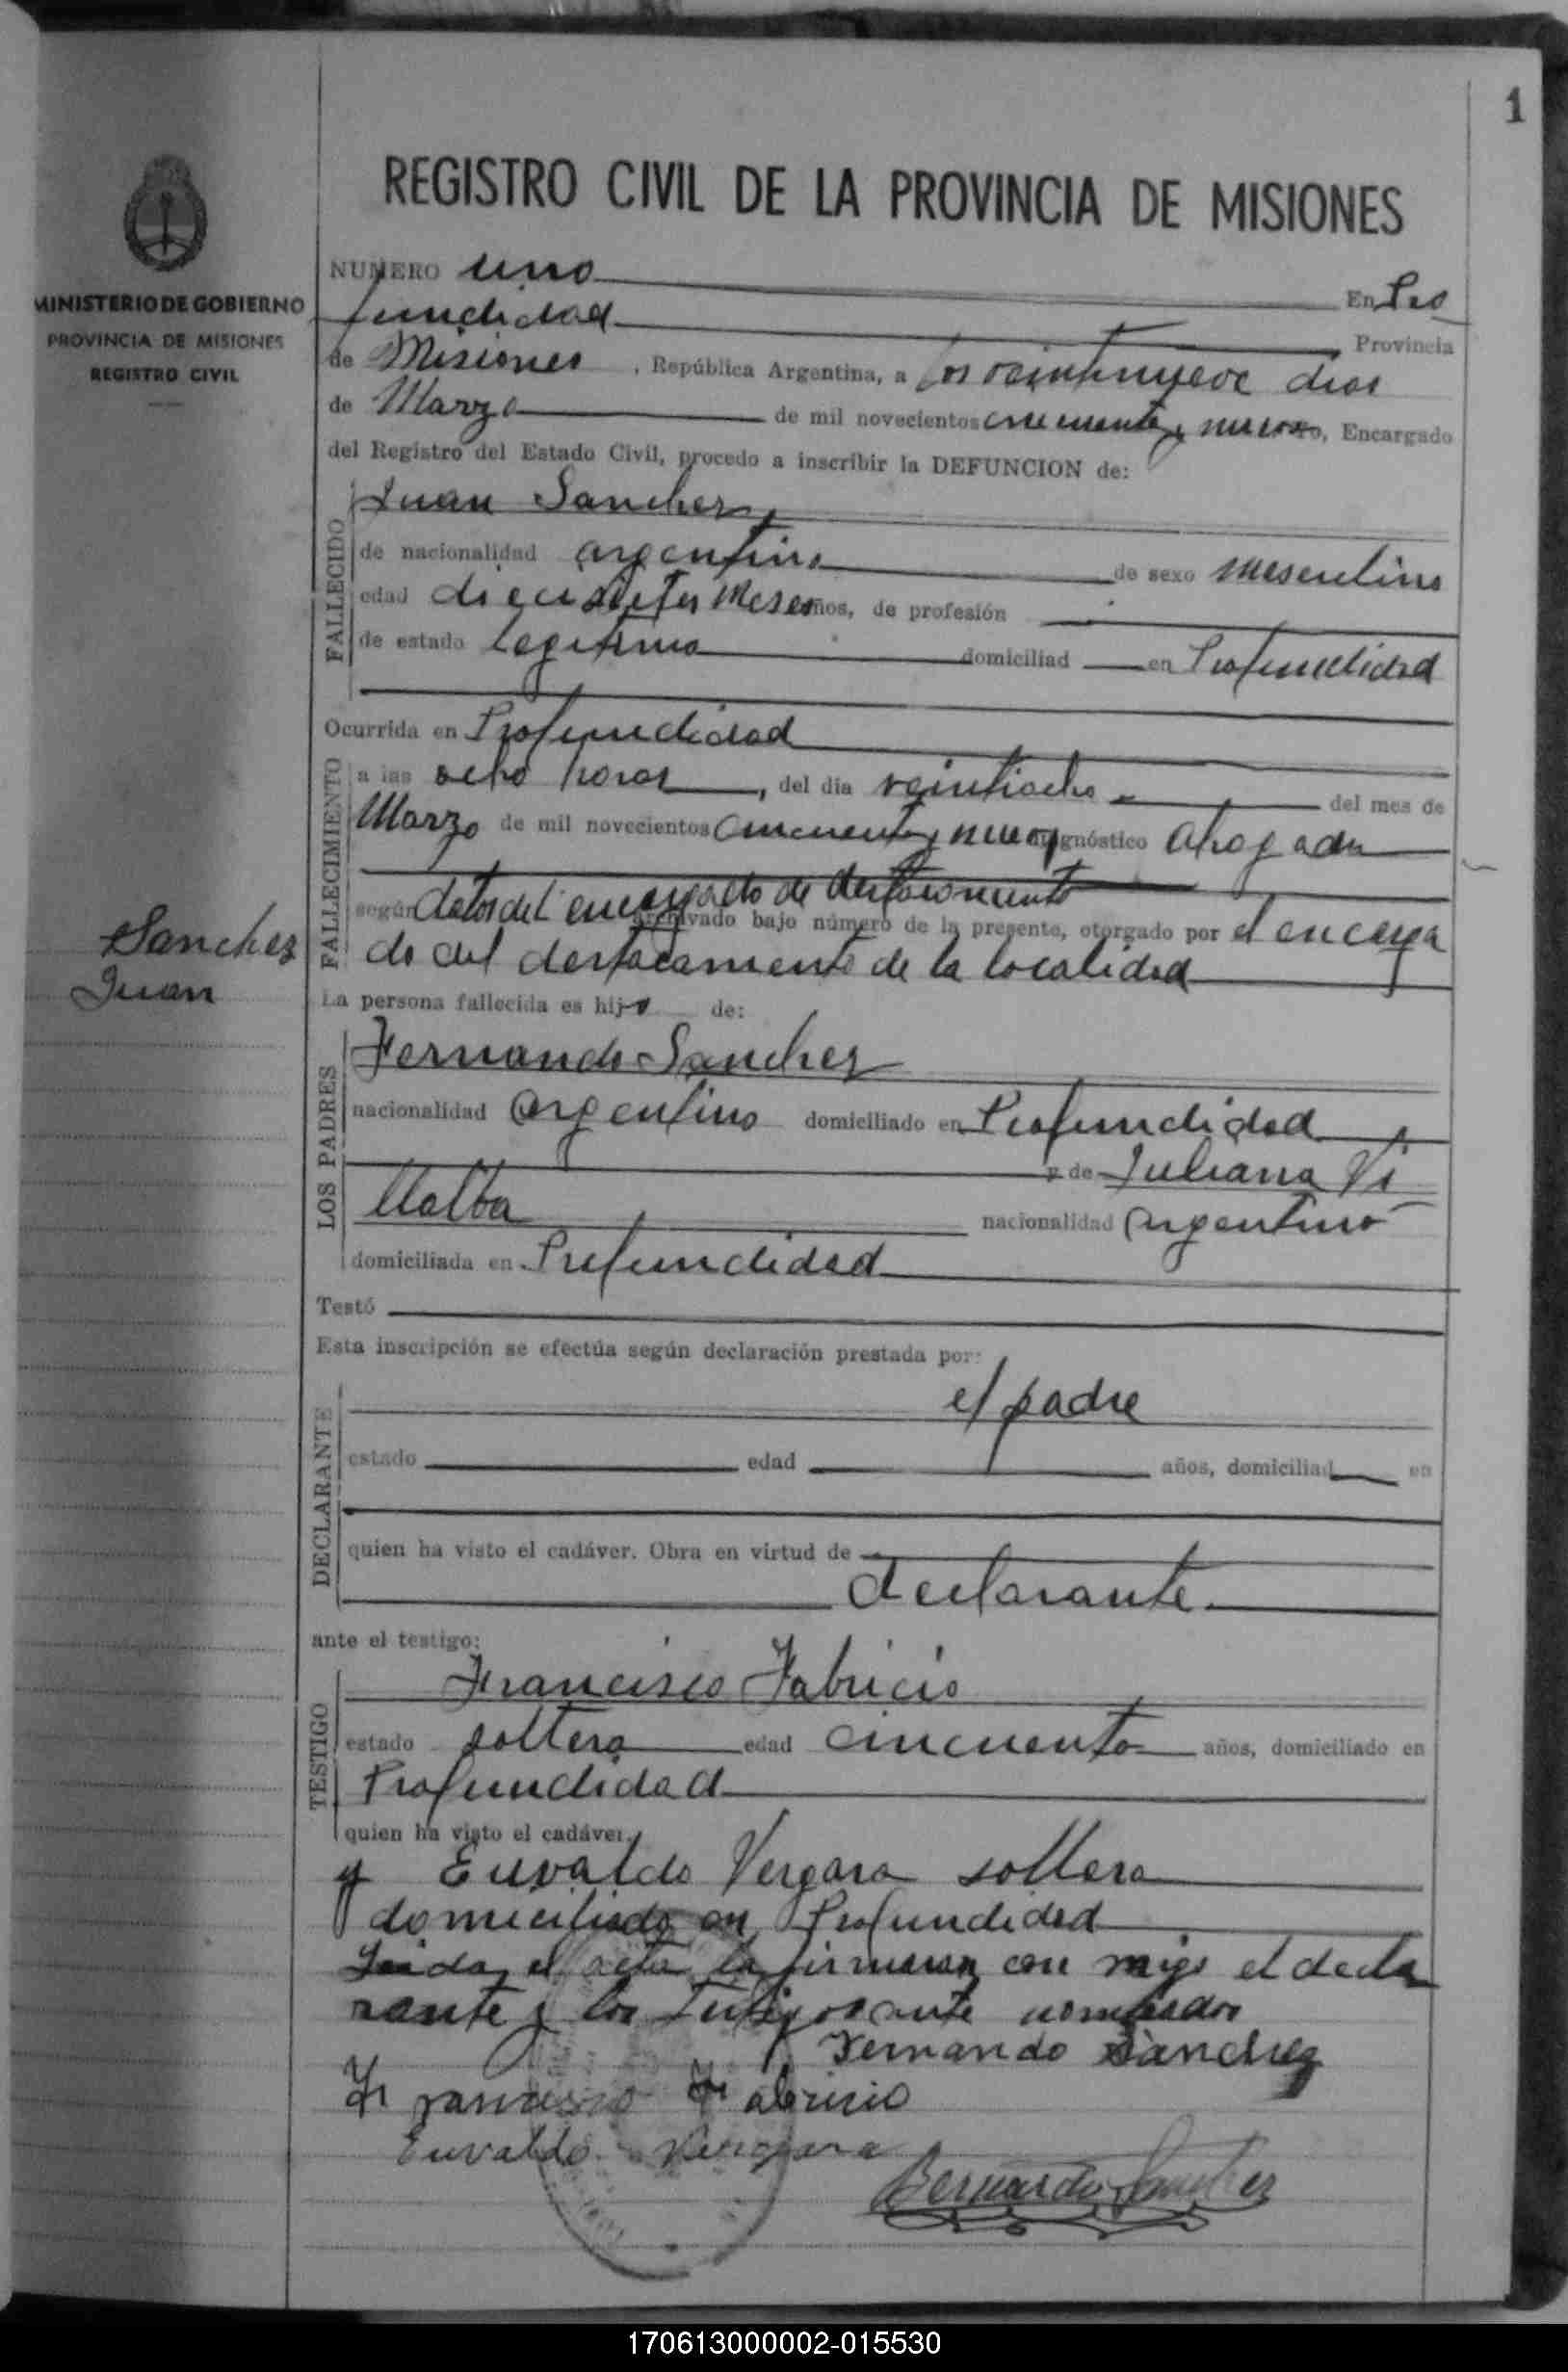 1
MINISTERIO DE GOBIERNO
PROVINCIA DE MISIONES
REGISTRO CIVIL
Sanchez
Juan
REGISTRO CIVIL DE LA PROVINCIA DE MISIONES
NUMERO uno En Pro
fundidad Provincia
de Misiones, República Argentina, a los veintinueve dias
de Marzo de mil novecientos cincuenta y nueve, Encargado
del Registro del Estado Civil, procedo a inscribir la DEFUNCION de:
FALLECIDO
Juan Sanchez
de nacionalidad argentino de sexo masculino
edad meses, de profesión
de estado legitimo domiciliad en Profundidad
Ocurrida en Profundidad
FALLECIMIENTO
a las ocho horas, del día veintiocho del mes de
Marzo de mil novecientos cincuenta y nueve diagnóstico ahogado
según datos del encargado de destacamento
archivado bajo número de la presente, otorgado por el encarga
do del destacamento de la localidad
La persona fallecida es hijo de:
LOS PADRES
Fernando Sanchez
nacionalidad argentino domiciliado en Profundidad
y de Juliana Vi
llalba nacionalidad argentina
domiciliada en Profundidad
Testó
Esta inscripción se efectúa según declaración prestada por:
DECLARANTE
el padre
estado edad años, domiciliad en
quien ha visto el cadáver. Obra en virtud de
declarante
ante el testigo:
TESTIGO
Francisco Fabricio
estado soltero edad cincuenta años, domiciliado en
Profundidad
quien ha visto el cadáver.
y Euvaldo Vergara soltero
domiciliado en Profundidad
Leida el acta la firmaron con migo el decla
rante y los testigos ante nombrados
Fernando Sànchez
Francisco Fabricio
Euvaldo Vergara
Bernardo Sanchez
170613000002-015530